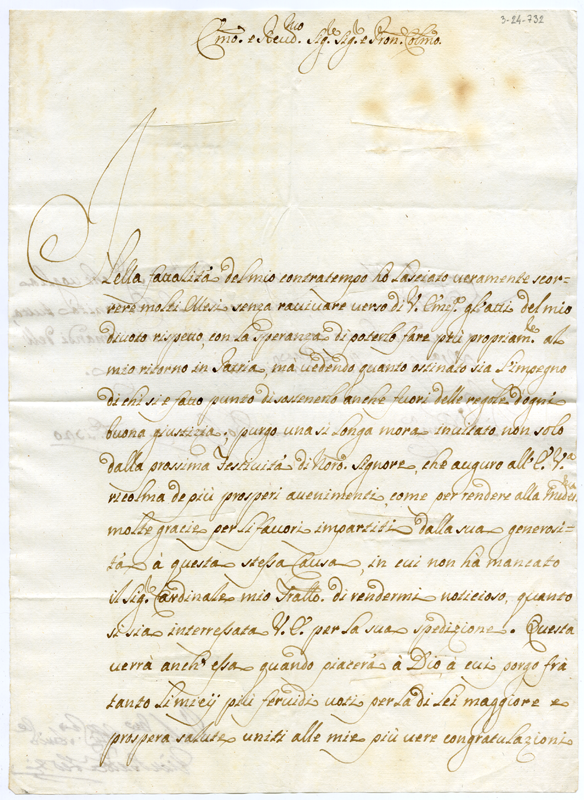 3-24-732
Emo. e Revd.mo Sig.r Sig.r e Pron. Colmo.
Nella fattalità del mio contratempo hò lasciato veramente scor-
rere molti Mesi senza ravivare verso di V. Em.za gl'atti del mio
divoto rispetto, con la speranza di poterlo fare più propriam.te al
mio ritorno in Patria, ma vedendo quanto ostinato sia l'impegno
di chi si è fatto punto di sostenerlo anche fuori delle regole d'ogni
buona giustizia, purgo una sì longa mora invitato non solo
dalla prossima Festività di Noro. Signore, che auguro all' E. V.a
ricolma de più prosperi avenimenti, come per rendere alla med.ma
molte grazie per li favori impartiti dalla sua generosi-
tà à questa stessa Causa, in cui non hà mancato
il Sig.r Cardinale mio Fratto. di rendermi noticioso, quanto
si sia interressata V. E. per la sua spedizione. Questa
verrà anch'essa quando piacerà à Dio, à cui porgo frà
tanto li mieij più fervidi voti per la di lei maggiore e
prospera salute uniti alle mie più vere congratulazioni